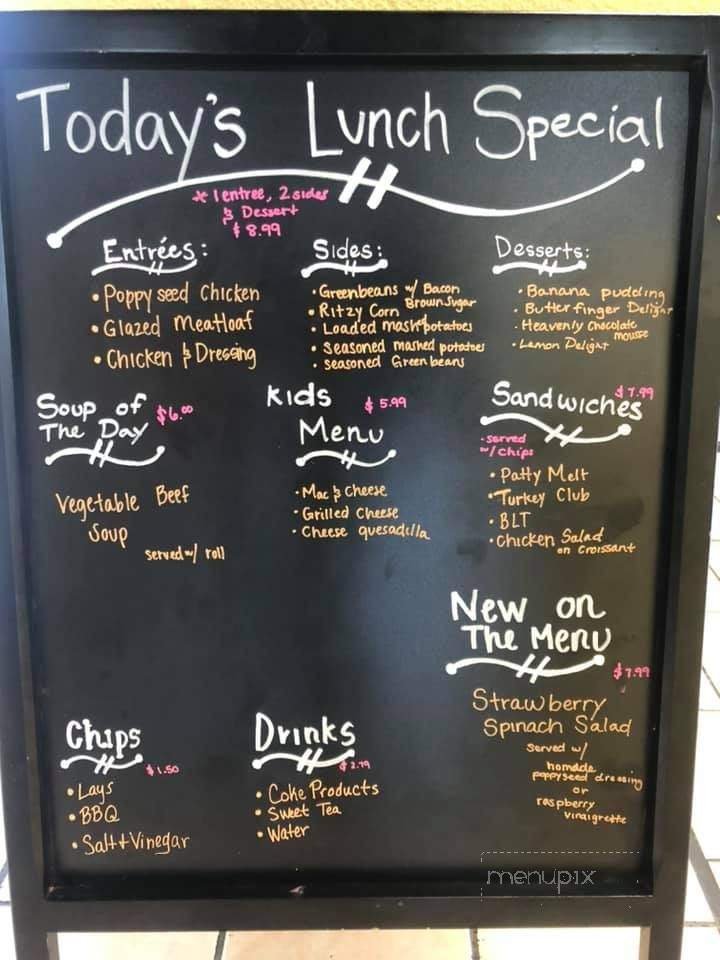 Today's Lunch Special
* 1 entree, 2 sides
& Dessert
$8.99
Entrées:
• Poppy seed Chicken
• Glazed Meatloaf
• Chicken & Dressing
Sides:
• Greenbeans w/ Bacon
Brown Sugar
• Ritzy Corn
• Loaded mashed potatoes
• Seasoned mashed potatoes
• seasoned Green beans
Desserts:
• Banana pudding
• Butterfinger Delight
• Heavenly Chocolate
mousse
• Lemon Delight
Soup of
The Day
$6.00
Vegetable Beef
Soup
served w/ roll
Kids
$5.99
Menu
• Mac & Cheese
• Grilled Cheese
• Cheese quesadilla
Sandwiches
$7.99
• served
w/ chips
• Patty Melt
• Turkey Club
• BLT
• Chicken Salad
on Croissant
New on
The Menu
$7.99
Strawberry
Spinach Salad
served w/
homade
poppyseed dressing
or
raspberry
vinaigrette
Chips
$1.50
• Lays
• BBQ
• Salt + Vinegar
Drinks
$2.79
• Coke Products
• Sweet Tea
• Water
menupix